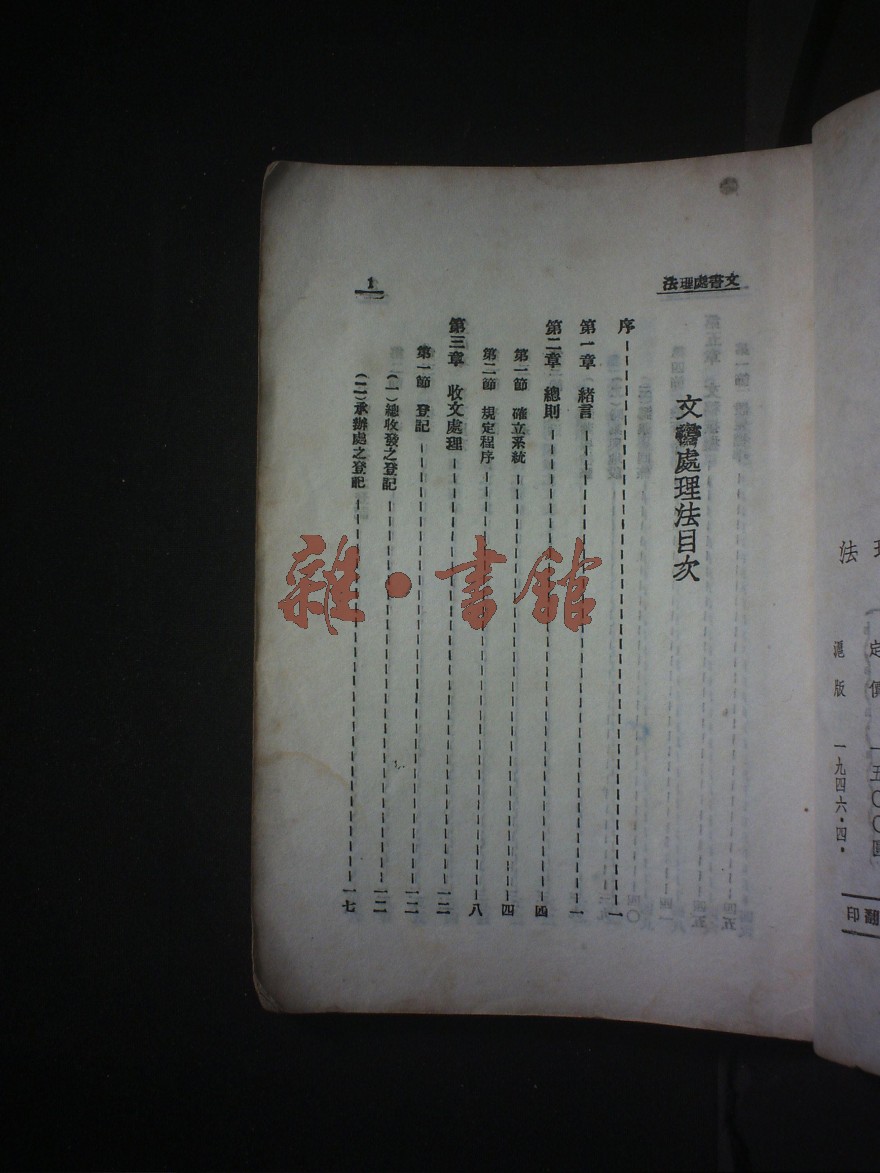 文書處理法
1
文書處理法目次
序 一
第一章 緒言 一
第二章 總則 四
第一節 確立系統 四
第二節 規定程序 八
第三章 收文處理 一二
第一節 登記 一二
（一）總收發之登記 一二
（二）承辦處之登記 一七
雜·書館
法
定價 一五〇〇
滬版 一九四六·四·
翻印